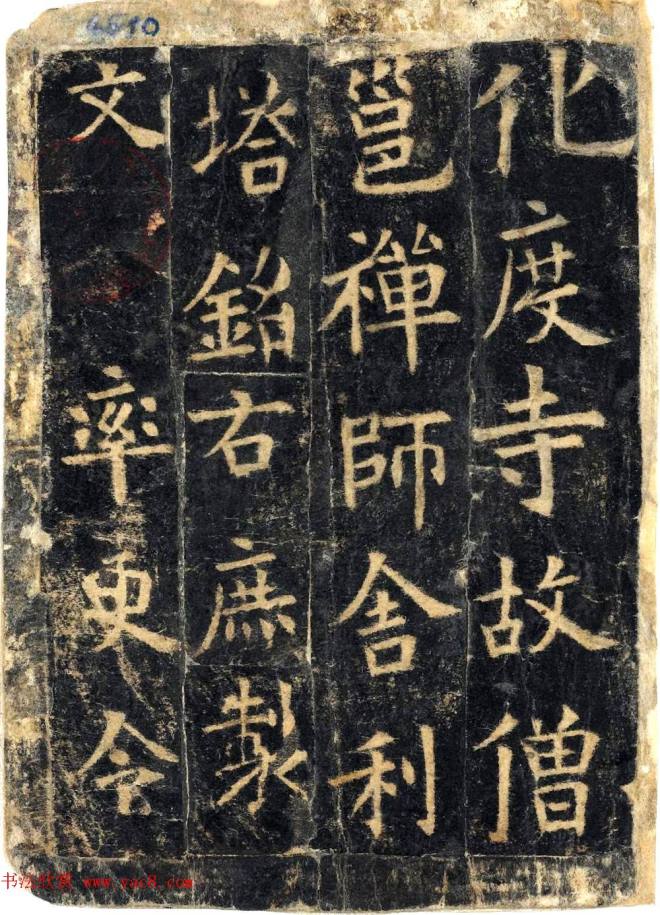 4610
化度寺故僧
邕禪師舍利
塔銘右庶製
文 率更令
书法欣赏 www.yac8.com